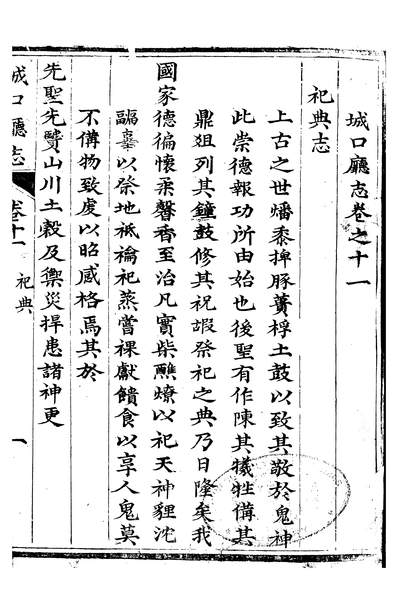 城口廳志卷之十一
祀典志
上古之世燔黍捭豚蕢桴土鼓以致其敬於鬼神
此崇德報功所由始也後聖有作陳其犧牲備其
鼎俎列其鐘鼓修其祝嘏祭祀之典乃日隆矣我
國家德徧懷柔馨香至治凡實柴醮燎以祀天神貍沈
疈辜以祭地祗禴祀蒸嘗祼獻饋食以享人鬼莫
不備物致虔以昭感格焉其於
先聖先賢山川土穀及禦災捍患諸神更
城口廳志
卷十一 祀典
一